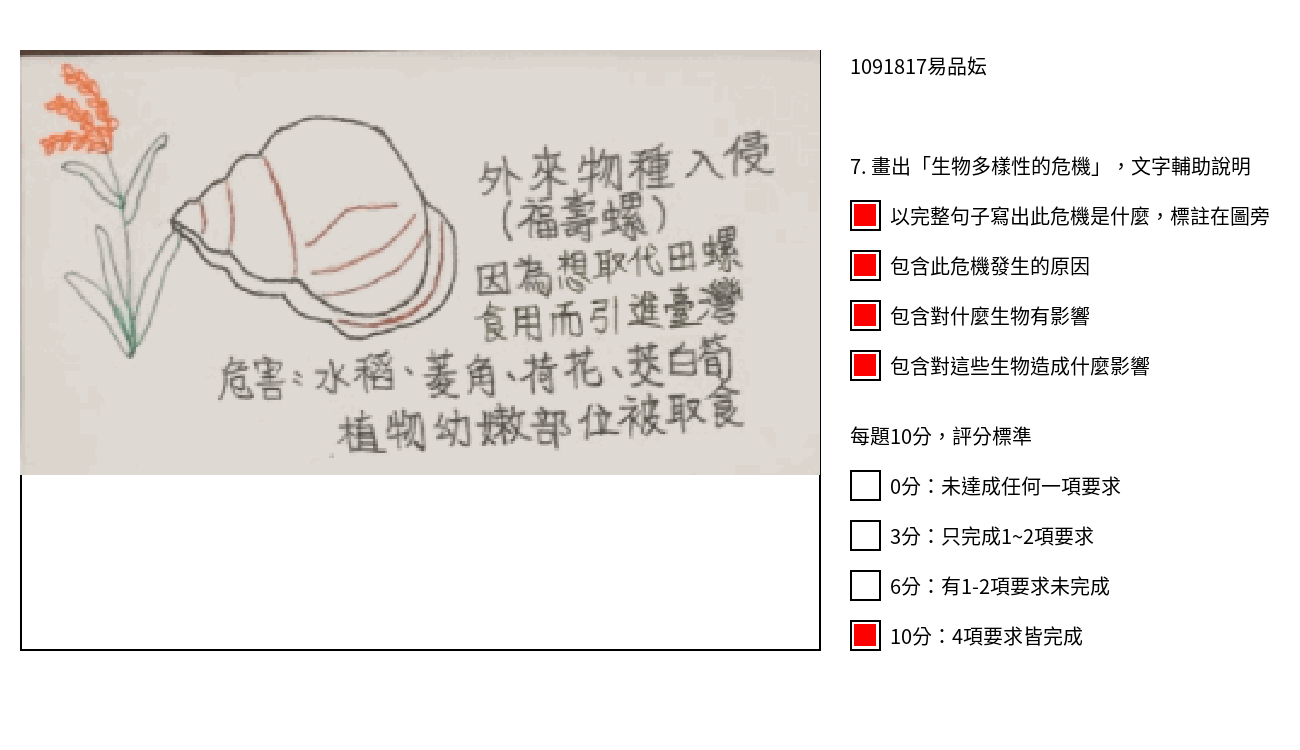 外來物種入侵
(福壽螺)
因為想取代田螺
食用而引進臺灣
危害:水稻、菱角、荷花、茭白筍
植物幼嫩部位被取食
1091817易品妘
7. 畫出「生物多樣性的危機」，文字輔助說明
以完整句子寫出此危機是什麼，標註在圖旁
包含此危機發生的原因
包含對什麼生物有影響
包含對這些生物造成什麼影響
每題10分，評分標準
0分：未達成任何一項要求
3分：只完成1~2項要求
6分：有1-2項要求未完成
10分：4項要求皆完成